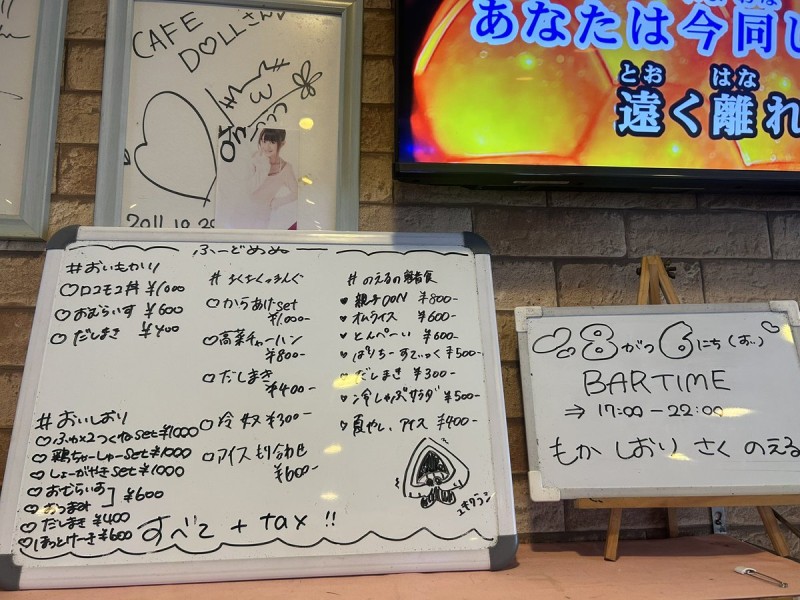 CAFE
DOLLさん♡
2011.10.29
あなたは今同じ
とお はな
遠く離れ
ふーどめぬ
#おいもかり
♡ロコモコ丼 ¥1000
♡おむらいす ¥600
♡だしまき ¥400
#おいしおり
♡ふかふかつくねset ¥1000
♡鶏ちゅーしゅーset ¥1000
♡しょーがやきset ¥1000
♡おむらいす
♡おつまみ ¥600
♡だしまき ¥400
♡ほっとけーき ¥600
♡からあげset
¥1,000-
♡高菜チャーハン
¥800-
♡だしまき
¥400-
♡冷奴 ¥300-
♡アイス盛り合わせ
¥600-
#のえるの
♥親子DON ¥800-
♥オムライス ¥600-
♥とんぺーい ¥600-
♥ぱりちーすてぃっく ¥500-
♥だしまき ¥300-
♥冷しゃぶサラダ ¥500-
♥夏やしいアイス ¥400-
すべて + tax !!
8がつ6にち(お)♡
BARTIME
⇒ 17:00-22:00
もか しおり さく のえる